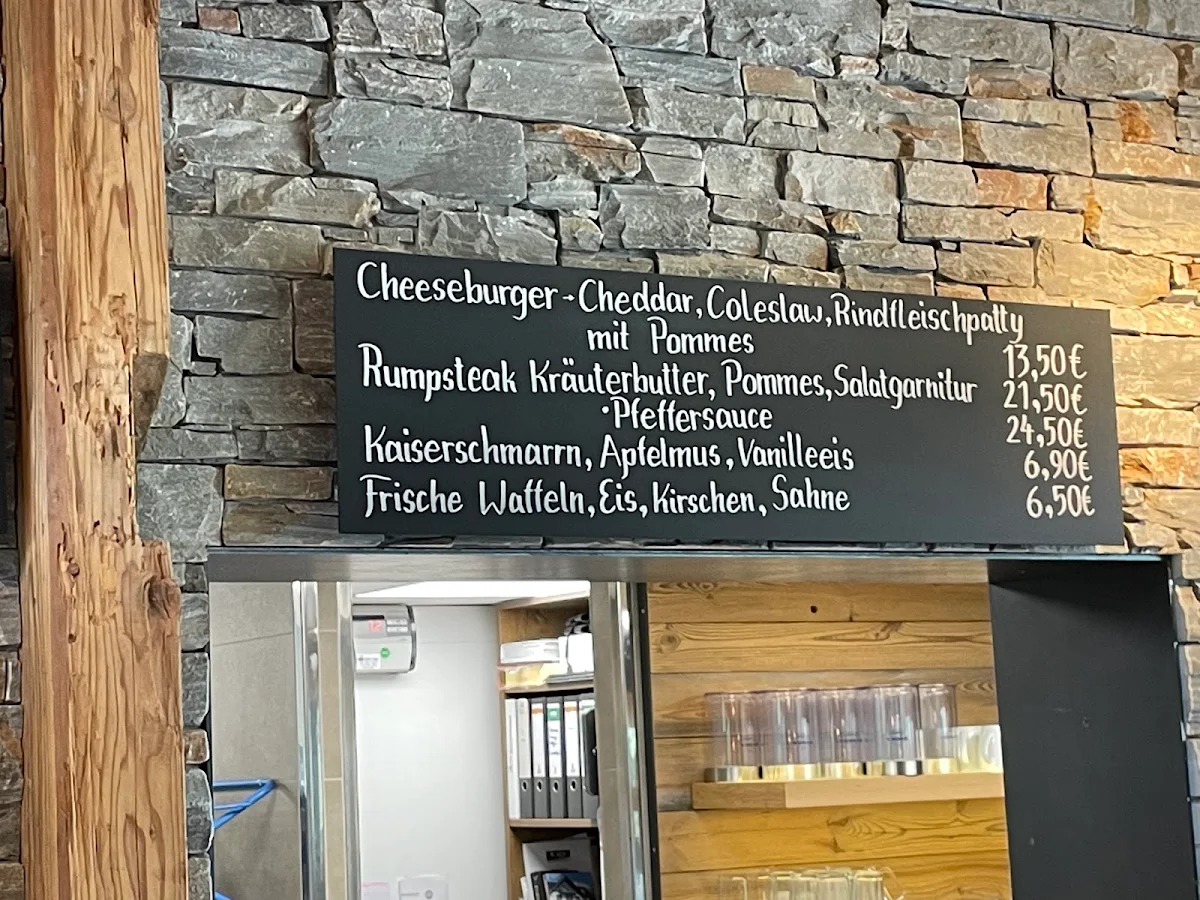 Cheeseburger - Cheddar, Coleslaw, Rindfleischpatty
mit Pommes 13,50€
Rumpsteak Kräuterbutter, Pommes, Salatgarnitur 21,50€
·Pfeffersauce 24,50€
Kaiserschmarrn, Apfelmus, Vanilleeis 6,90€
Frische Waffeln, Eis, Kirschen, Sahne 6,50€